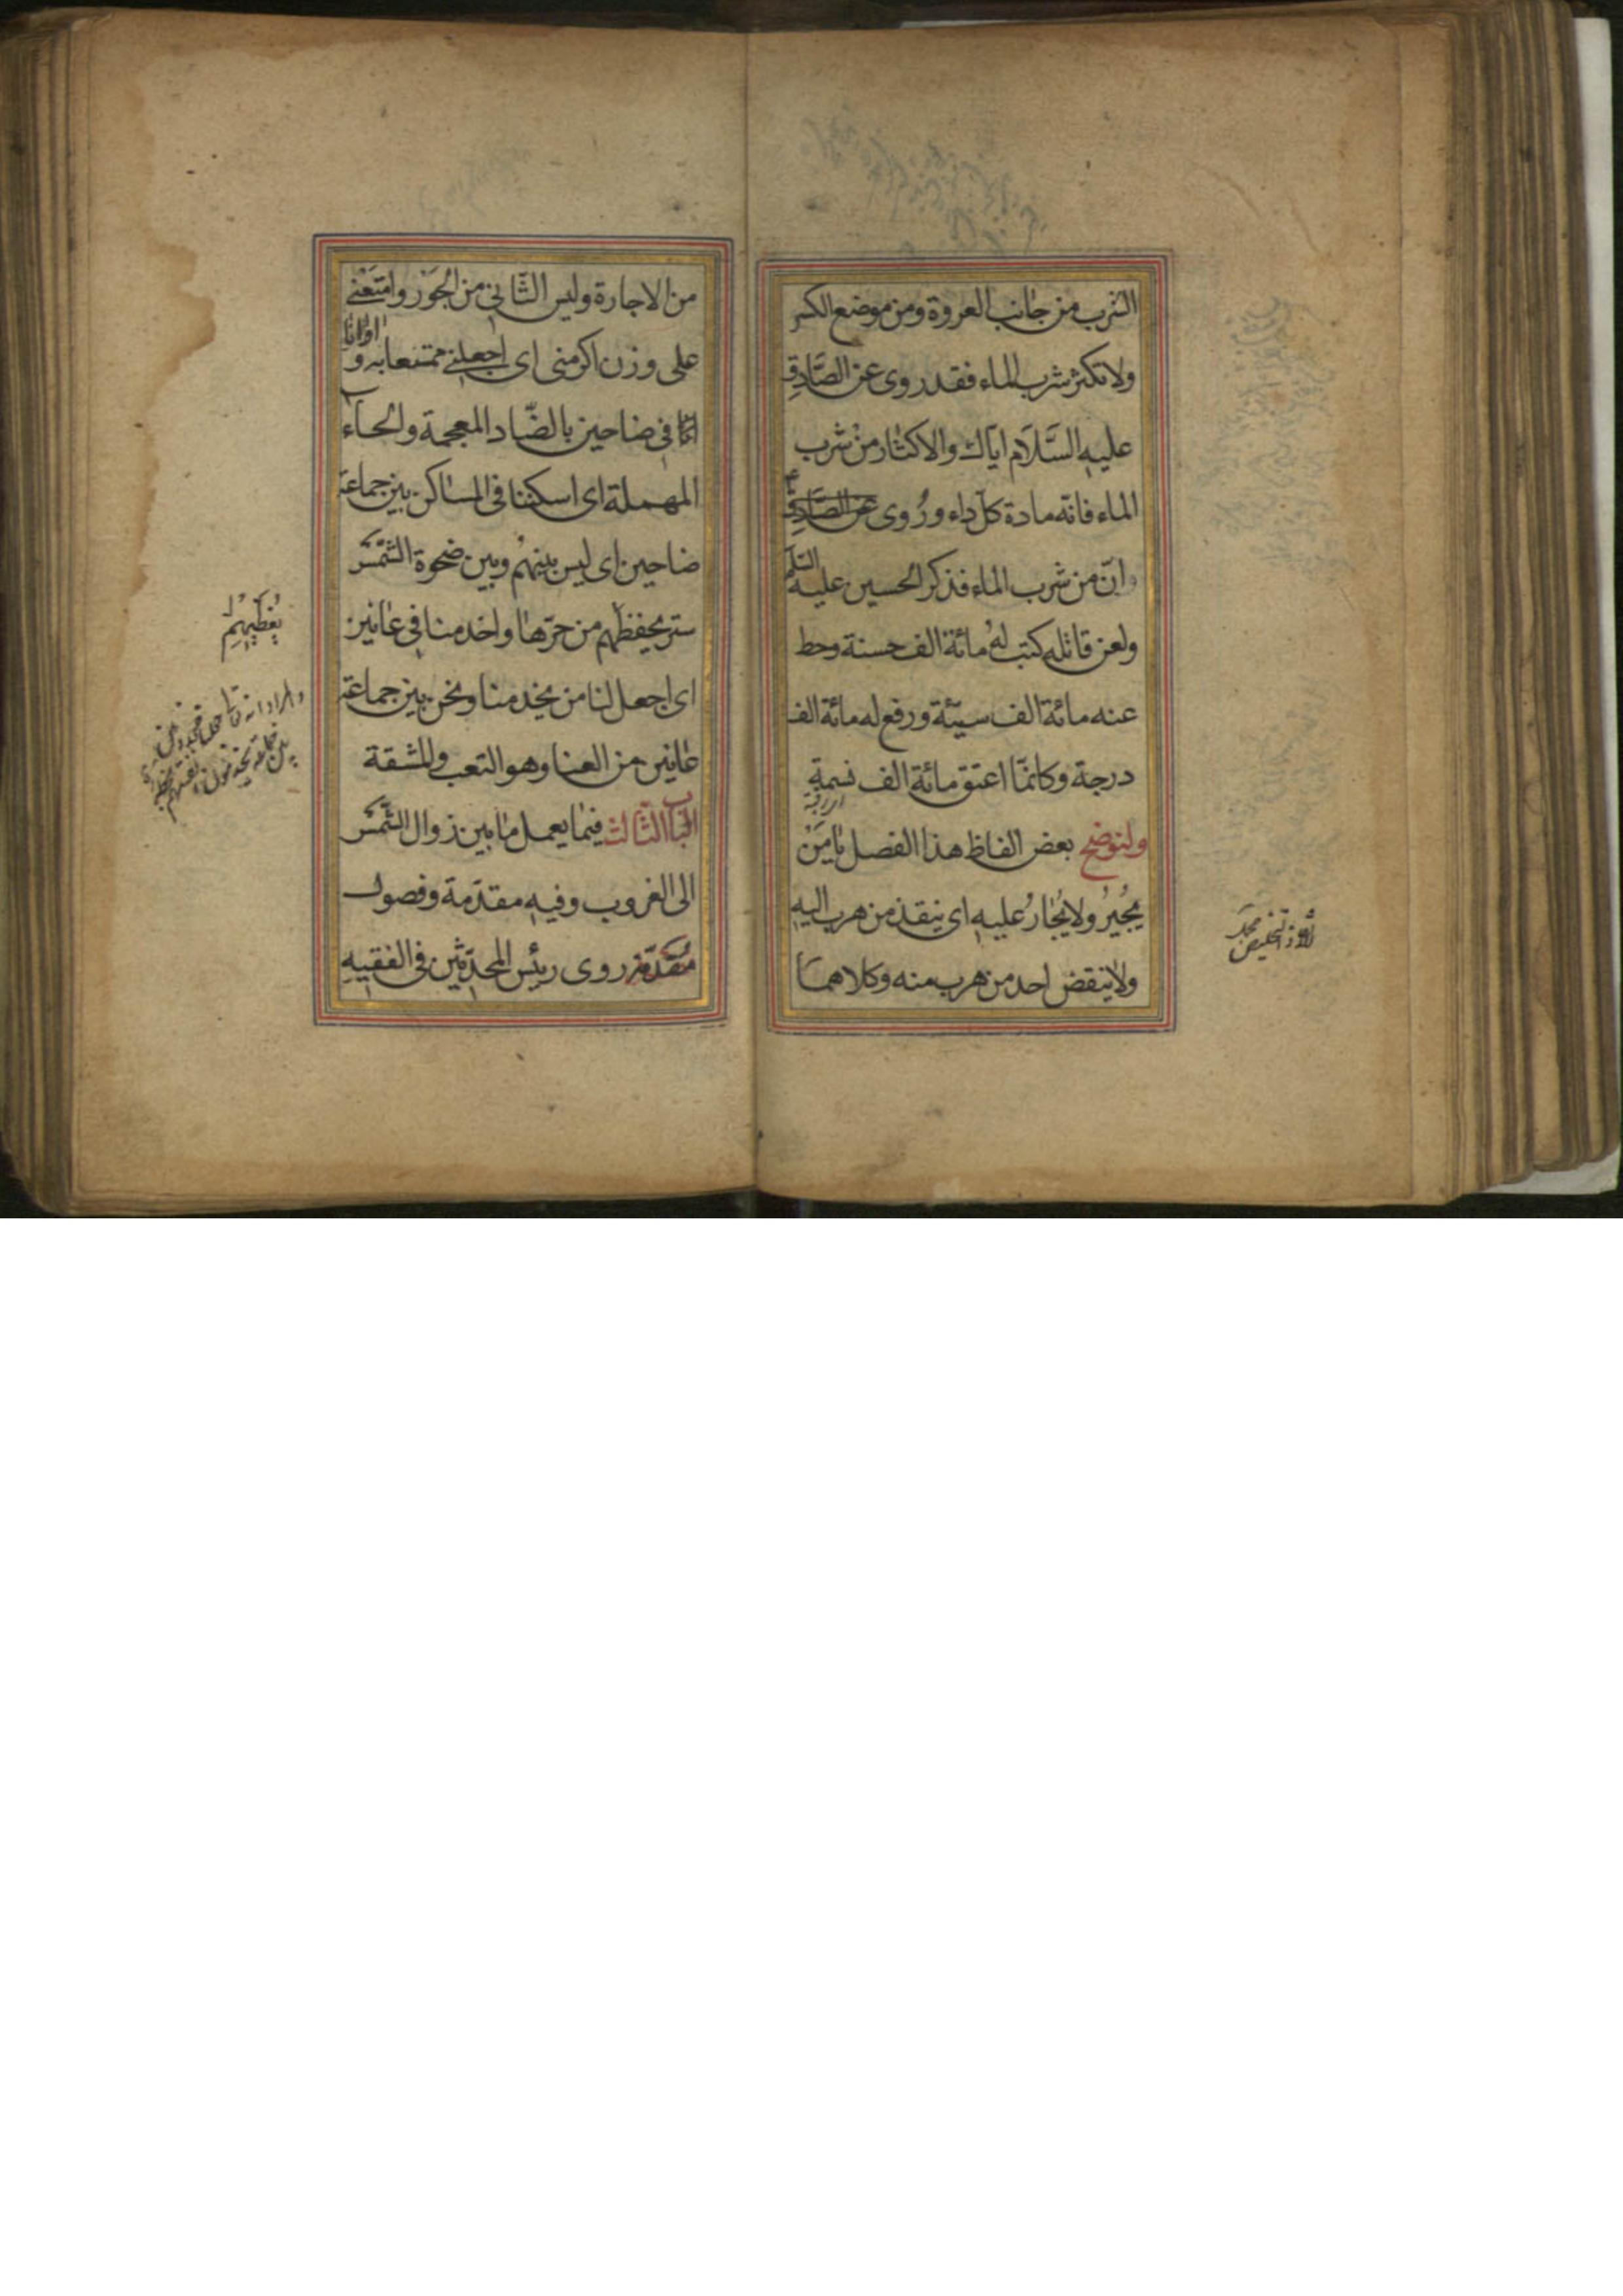 الشرب من جانب العروة ومن موضع الكسر
ولا تكثر شرب الماء فقد روى عن الصَّادِق
عليه السَّلَام ايّاك والاكثار من شرب
الماء فانّه مادة كلّ داء ورُوى عن الصَّادِق
انّ من شرب الماء فذكر الحسين عليه السَّلَم
ولعن قاتله كتب لهُ مائة الف حسنة وحط
عنه مائة الف سيّئة ورفع له مائة الف
درجة وكانمّا اعتق مائة الف نسمةٍ
ولنوضح بعض الفاظ هذا الفصل يا مَنْ
يُجيرُ ولا يُجارُ عليه اى ينقذ من هرب اليه
ولا ينقض احد من هرب منه وكلاهما
من الاجارة وليس الثّانى من الجَوْر وامتَعْنى
على وزن اكرمنى اى اجعلنى ممتنعا به و اوانا
فى ضاحين بالضّاد المعجمة والحاء
المهملة اى اسكننا فى المساكن بين جماعة
ضاحين اى ليس بينهُم وبين ضحوة الشّمس
ستر يحفظهم من حرّها واخدمنا فى عانين
اى اجعل لنا من يخدمنا ونحن بين جماعة
عانين من العنا وهو التعب والمشقة
الباب الثالث فيما يعمل ما بين زوال الشّمس
الى الغروب وفيه مقدّمة وفصول
مُقدّمة روى رئيس المحدّثين فى الفقيه